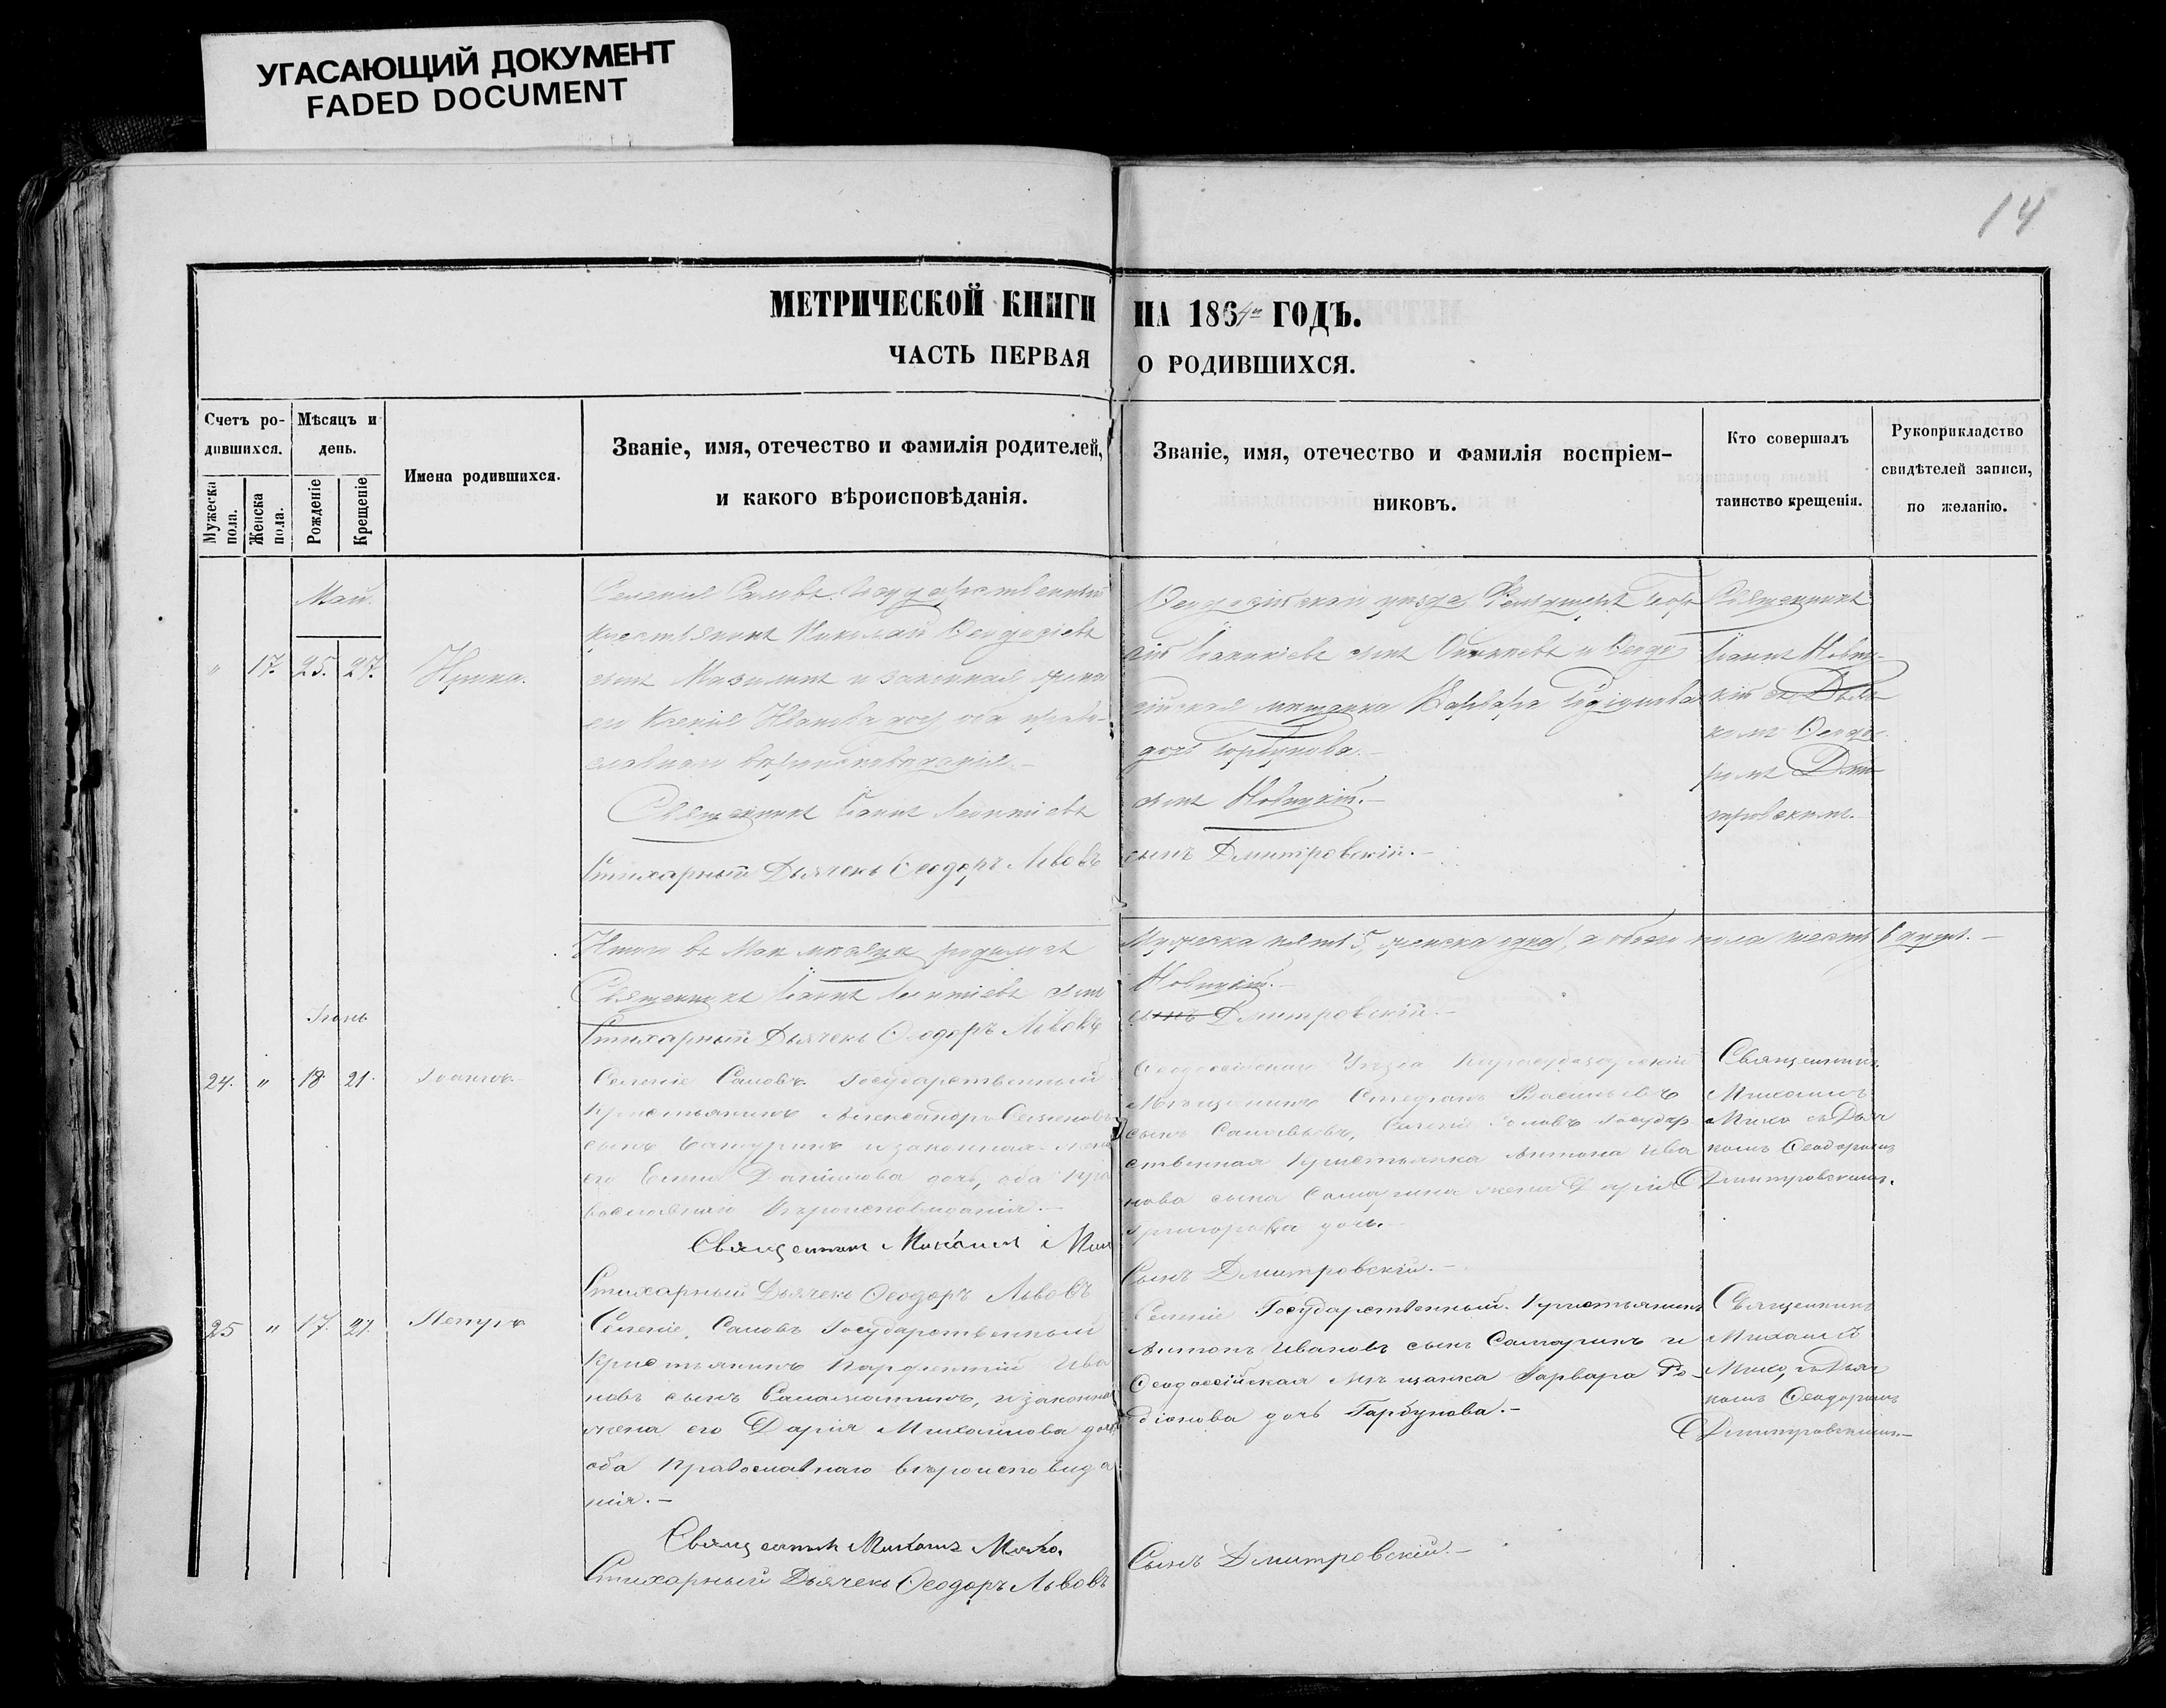 УГАСАЮЩИЙ ДОКУМЕНТ
FADED DOCUMENT
14
МЕТРИЧЕСКОЙ КНИГИ НА 1864 ГОДЪ.
ЧАСТЬ ПЕРВАЯ О РОДИВШИХСЯ.
Счетъ ро-
дившихся.
Мужеска пола.
Женска пола.
Мѣсяцъ и
день.
Рожденіе
Крещеніе
Имена родившихся.
Званіе, имя, отечество и фамилія родителей,
и какого вѣроисповѣданія.
Званіе, имя, отечество и фамилія воспріем-
никовъ.
Кто совершалъ
таинство крещенія.
Рукоприкладство
свидѣтелей записи,
по желанію.
Май.
" 17. 25. 27.
Ирина.
Селенія Саловъ Государственный
крестьянинъ Николай Ѳеодосіевъ
сынъ и законная жена
его Ксенія Иванова дочь, оба право-
славнаго вѣроисповѣданія.—
Священникъ Іоаннъ Леонтіевъ
Стихарный Дьячекъ Ѳеодоръ Львовъ
Ѳеодосійскаго уѣзда
сынъ и Ѳеодо
сійская мѣщанка Варвара Родіонова
дочь Горбунова.—
сынъ Новицкій.—
сынъ Дмитровскій.—
Священникъ
Іоаннъ Новиц-
кій съ Дьяч-
комъ Ѳеодо-
ромъ Дми-
тровскимъ.
Итого въ Маѣ мѣсяцѣ родилось
Мужеска пять 5, женска одна, а обоего пола шесть 6 душъ.—
Священникъ Іоаннъ Леонтіевъ сынъ
Новицкій.—
Стихарный Дьячекъ Ѳеодоръ Львовъ
сынъ Дмитровскій.—
Іюнь
24. " 18. 21.
Іоаннъ.
Селеніе Саловъ. Государственный
Крестьянинъ Александръ Семеновъ
сынъ Батуринъ и законная жена
его Елена Даніилова дочь, оба Пра
вославнаго Вѣроисповѣданія.—
Священник Михаилъ
Стихарный Дьячекъ Ѳеодоръ Львовъ
Ѳеодосійскаго Уѣзда Карасубазарскій
Мѣщанинъ Стефанъ Васильевъ
сынъ Соловьевъ, Селеніе Саловъ Государ
ственная Крестьянка Антона Ива
нова сына Самарина жена Дарія
Григорьева дочь.
Сынъ Дмитровскій.—
Священникъ
Михаилъ
Мико съ Дьяч
комъ Ѳеодоромъ
Дмитровскимъ.
25 " 17. 21.
Петръ
Селеніе. Саловъ Государственный
Крестьянинъ Парфентій Ива
новъ сынъ и законная
жена его Дарія Михайлова дочь
оба Православнаго вѣроисповѣда
нія.—
Священник Михаилъ Мико.
Стихарный Дьячекъ Ѳеодоръ Львовъ
Селеніе Государственный. Крестьянинъ
Антонъ Ивановъ сынъ Самаринъ и
Ѳеодосійская мѣщанка Варвара Ро-
діонова дочь Гарбунова.—
Сынъ Дмитровскій.—
Священникъ
Михаилъ
Мико, съ Дьяч
комъ Ѳеодоромъ
Дмитровскимъ.—